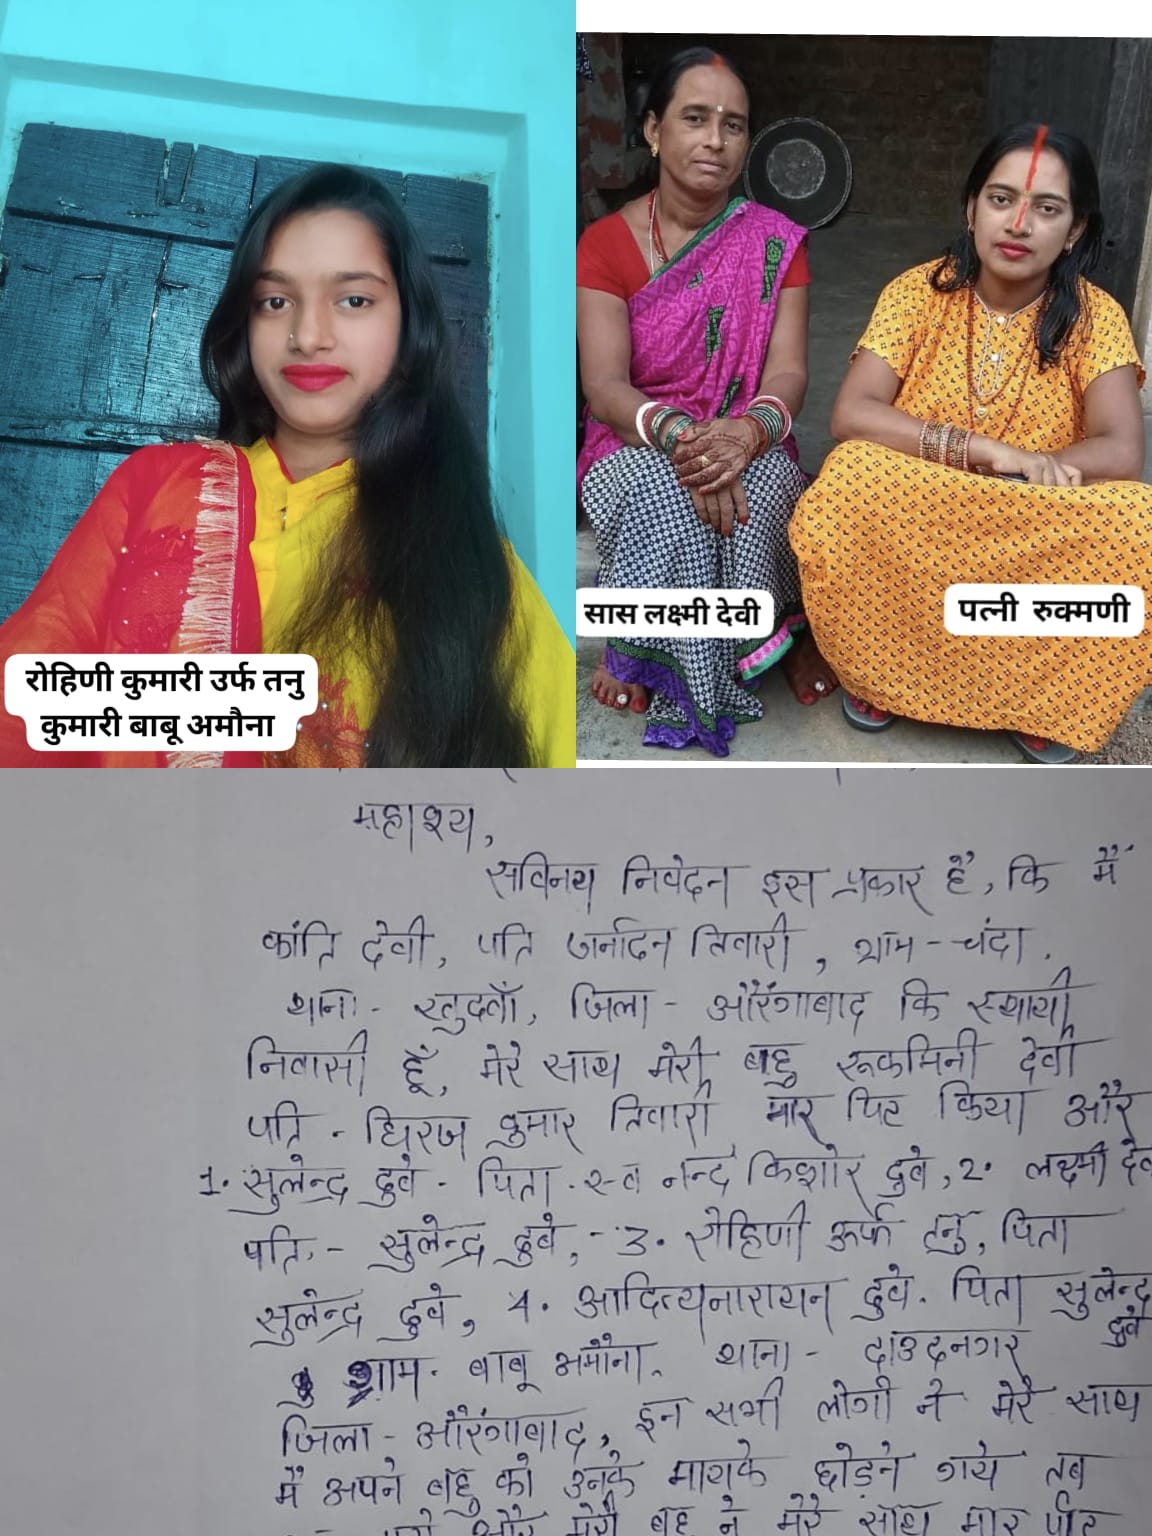 रोहिणी कुमारी उर्फ तनु
कुमारी बाबू अमौना
सास लक्ष्मी देवी
पत्नी रुक्मणी
महाश्य,
सविनय निवेदन इस प्रकार है, कि मैं
कांति देवी, पति जर्नादन तिवारी, ग्राम - चंदा.
थाना - खुदवाँ, जिला - औरंगाबाद कि स्थायी
निवासी हूँ, मेरे साथ मेरी बहु रूकमिनी देवी
पति - धिरज कुमार तिवारी मार पिट किया और
1. सुलेन्द्र दुवे - पिता - स्व नन्द किशोर दुवे, 2. लक्ष्मी
पति - सुलेन्द्र दुवे, - 3. रोहिणी ऊर्फ टनु, पिता
सुलेन्द्र दुवे, 4. आदित्यनारायन दुवे. पिता सुलेन्द्र
दुवे
ग्राम - बाबू अमौना, थाना - दाउदनगर
जिला - औरंगाबाद, इन सभी लोगो ने मेरे साथ
मैं अपने बहु को उनके मायके छोड़ने गये तब
और मेरी बहु ने मेरे साथ मार पिट